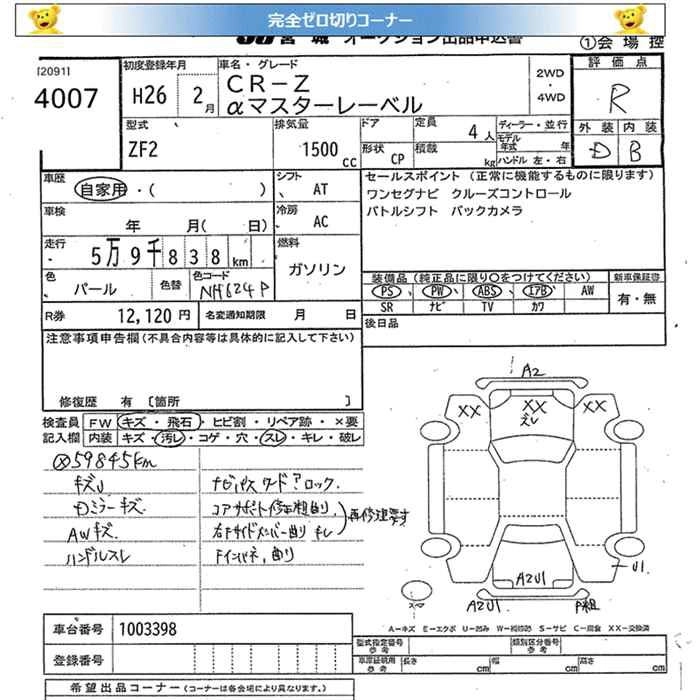 完全ゼロ切りコーナー
JU宮城 オークション出品申込書
①会場控
[2091]
4007
初度登録年月
H26 2月
車名・グレード
CR-Z
αマスターレーベル
2WD
・
4WD
評価点
R
外装 内装
D B
型式
ZF2
排気量
1500cc
ドア
形状 CP
定員 4人
積載 kg
ディーラー・並行
モデル年式 年
ハンドル 左・右
車歴
自家用・( )
シフト
AT
車検
年 月( 日)
冷房
AC
セールスポイント (正常に機能するものに限ります)
ワンセグナビ クルーズコントロール
パトルシフト バックカメラ
走行
5万9千838km
燃料
ガソリン
色
パール
色替
色コード
NH624P
装備品(純正品に限り○をつけてください)
PS PW ABS エアB AW
SR ナビ TV カワ
新車保証書
有・無
R券 12,120円
名変通知期限 月 日
後日品
注意事項申告欄(不具合内容等は具体的に記入して下さい)
修復歴 有 [箇所 ]
検査員記入欄
FW キズ・飛石・ヒビ割・リペア跡・×要
内装 キズ・汚レ・コゲ・穴・スレ・キレ・破レ
59845km
キズU
Dミラーキズ
AWキズ
ハンドルスレ
ナビパスワードロック
コアサポート修正粗曲り
右Fサイドメンバー曲り
Fインパネ,曲り
再修速要す
A2
XX
XX
XX
A2U1
A2U1
U1
P粗
スペア
A-キズ E-エクボ U-凹み W-補修跡 S-サビ C-腐食 XX-交換済
車台番号 1003398
登録番号
型式指定番号 参考
類別区分番号 参考
車庫証明用 参考
長さ cm
幅 cm
高さ cm
希望出品コーナー(コーナーは各会場により異なります。)